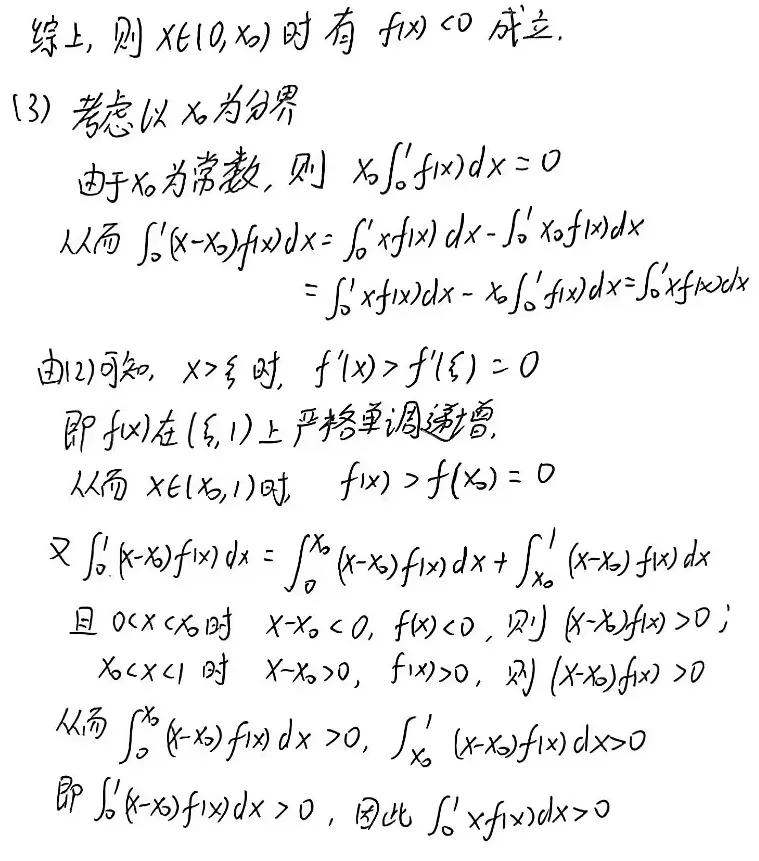 综上, 则 x∈(0, x₀) 时 有 f(x) < 0 成立.
(3) 考虑以 x₀ 为分界
由于 x₀ 为常数, 则 x₀∫₀¹f(x)dx = 0
从而 ∫₀¹(x-x₀)f(x)dx = ∫₀¹xf(x)dx - ∫₀¹x₀f(x)dx
= ∫₀¹xf(x)dx - x₀∫₀¹f(x)dx = ∫₀¹xf(x)dx
由(2)可知, x>ξ 时, f'(x) > f'(ξ) = 0
即 f(x) 在 (ξ, 1) 上 严格单调递增,
从而 x∈(x₀, 1) 时, f(x) > f(x₀) = 0
又 ∫₀¹(x-x₀)f(x)dx = ∫₀^{x₀}(x-x₀)f(x)dx + ∫_{x₀}^1 (x-x₀)f(x)dx
且 0<x<x₀ 时 x-x₀<0, f(x)<0, 则 (x-x₀)f(x)>0;
x₀<x<1 时 x-x₀>0, f(x)>0, 则 (x-x₀)f(x)>0
从而 ∫₀^{x₀}(x-x₀)f(x)dx>0, ∫_{x₀}^1 (x-x₀)f(x)dx>0
即 ∫₀¹(x-x₀)f(x)dx>0, 因此 ∫₀¹xf(x)dx>0